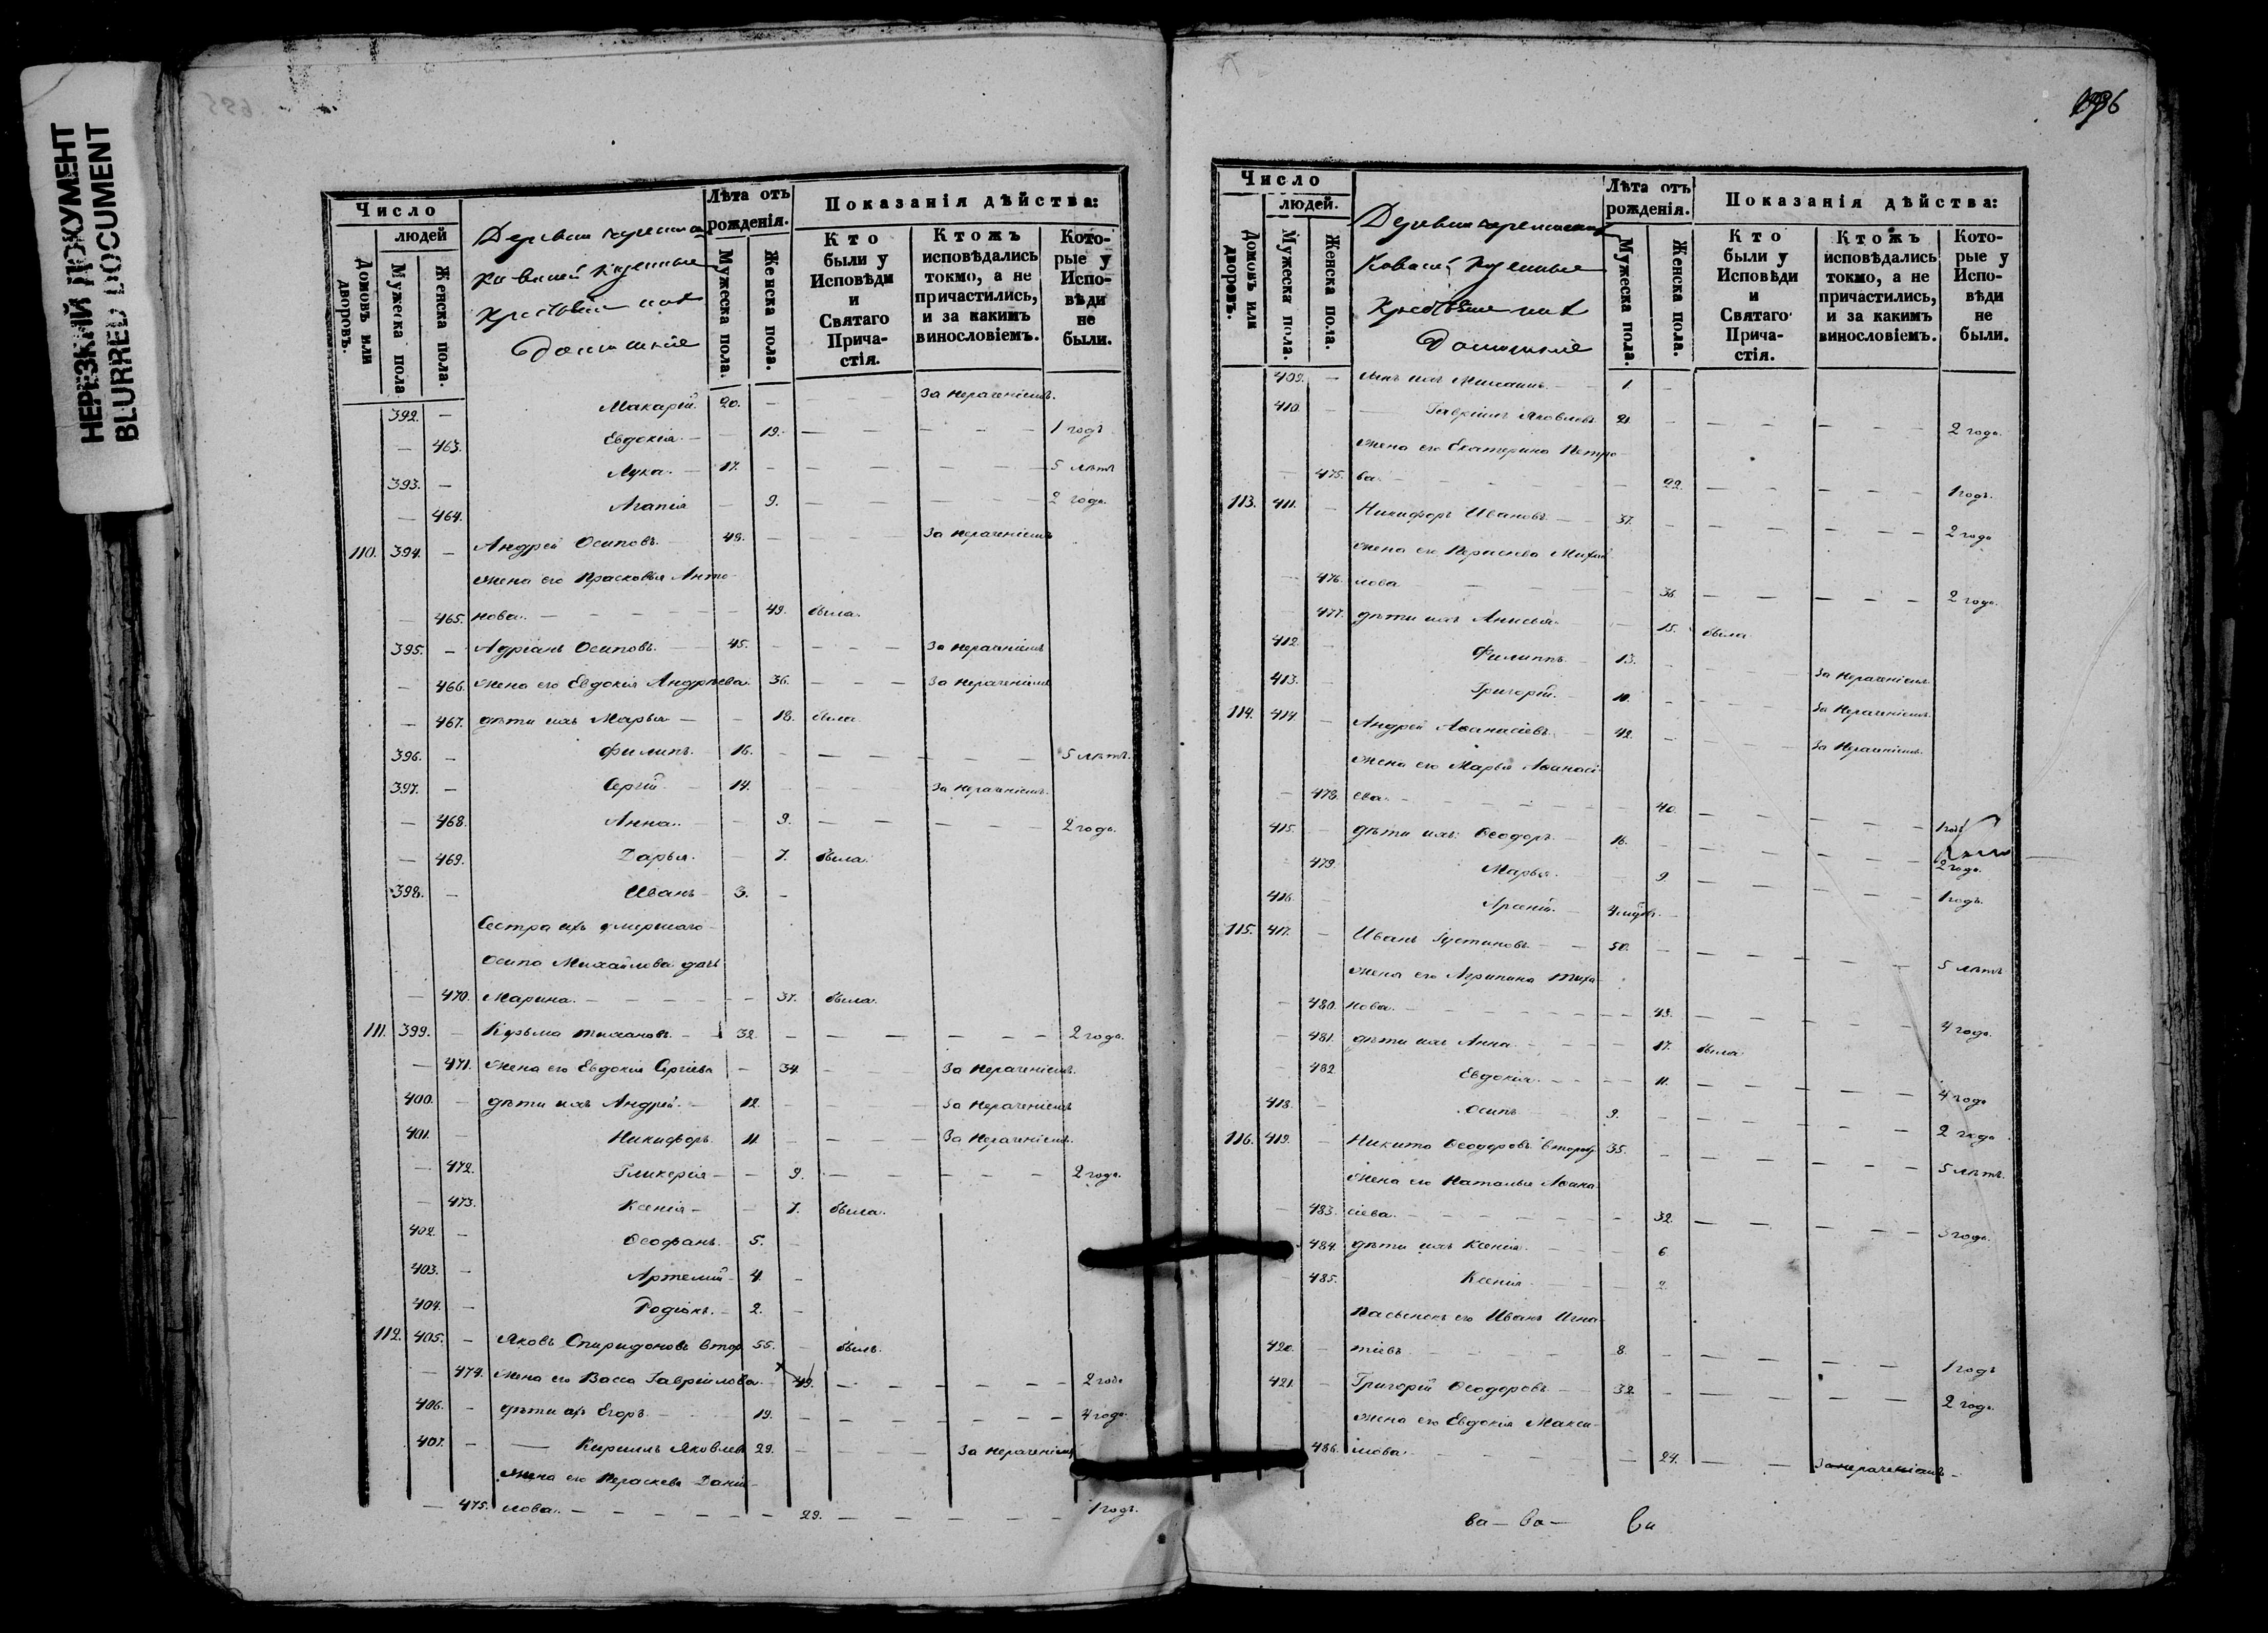 НЕРЕЗКИЙ ДОКУМЕНТ
BLURRED DOCUMENT
Число
людей
Домовъ или дворовъ.
Мужеска пола
Женска пола.
Деревни
казенные
домашніе
Лѣта отъ рожденія.
Мужеска пола.
Женска пола.
Показанія дѣйства:
Кто были у Исповѣди и Святаго Прича-стія.
Ктожъ исповѣдались токмо, а не причастились, и за какимъ винословіемъ.
Кото-рые у Испо-вѣди не были.
392. — Макарій. 20. — — — За нераченіемъ.
— 463. Евдокія. — — 19. — — — — — 1 годъ
393. — Лука. — 17. — — — — — — 5 лѣтъ
— 464. Агапія — 9. — — — — — 2 года.
110. 394. — Андрей Осиповъ. — 49. — — — За нераченіемъ
жена его Прасковья Анто-
— 465. нова. — — — — — — 49. была.
395. — Адріанъ Осиповъ. — 45. — — — — За нераченіемъ
— 466. жена его Евдокія Андрѣева. 36. — — — За нераченіемъ
— 467. дѣти ихъ Марья — — 18. была.
396. — Филипъ. — 16. — — — — — — 5 лѣтъ.
397. — Сергій. — 14. — — — За нераченіемъ.
— 468. Анна. — — 9. — — — — — 2 года.
— 469. Дарья. — 7. была.
398. — Иванъ — 3. —
Сестра ихъ умершаго
Осипа Михайлова дочь
— 470. Марина. — — — — — 37. была.
111. 399. — Кузьма Тихановъ. — 32. — — — — — — 2 года.
— 471. жена его Евдокія Сергіева — 34. — — За нераченіемъ.
400. — дѣти ихъ Андрей. — 12. — — — За нераченіемъ
401. — Никифоръ. 11. — — — За нераченіемъ.
— 472. Гликерія — — 9. — — — — — 2 года.
— 473. Ксенія — — 7. была.
402. — Ѳеофанъ. 5. —
403. — Артемій — 4. —
404. — Родіонъ. — 2. —
112. 405. — Яковъ Спиридоновъ втор 55. — былъ.
— 474. жена его Васса Гавріилова. — 49. — — — — — 2 года
406. — дѣти их Егоръ. — 19. — — — — — — 4 года.
407. — — Кириллъ Яковлевъ 29. — — — За нераченіемъ
жена его Параскева Даніи-
— 475. лова. — — — — — — 29. — — — — — 1 годъ.
Число
людей.
Домовъ или дворовъ.
Мужеска пола.
Женска пола.
Деревни
казенные
домашніе
Лѣта отъ рожденія.
Мужеска пола.
Женска пола.
Показанія дѣйства:
Кто были у Исповѣди и Святаго Прича-стія.
Ктожъ исповѣдались токмо, а не причастились, и за какимъ винословіемъ.
Кото-рые у Испо-вѣди не были.
409. — сынъ ихъ Михаилъ. — 1. —
410. — — Гавріилъ Яковлевъ 21. — — — — — — 2 года.
жена его Екатерина Петро-
— 475. ва. — — — — — — 22. — — — — — 1 годъ.
113. 411. — Никифоръ Ивановъ. — 37. — — — — — — 2 года
жена его Михай-
— 476. лова — — — — — 36. — — — — — 2 года.
— 477. дѣти ихъ Анисья. — — 15. была.
412. — Филиппъ. — 13. — — — За нераченіемъ.
413. — Григорій. — 10. — — — За нераченіемъ.
114. 414. — Андрей Аѳанасіевъ. — 42. — — — За нераченіемъ.
жена его Марья Аѳанасі-
— 478. ева. — — — — — — 40. — — — — — 1 годъ
415. — дѣти ихъ Ѳеодоръ. — 16. — — — — — — 2 года.
— 479. Марья. — — 9. — — — — — 1 годъ.
416. — Арсеній. —
115. 417. — Иванъ Іустиновъ — — 50. — — — — — — 5 лѣтъ
жена его Агрипина Тиха-
— 480. нова. — — — — — — 49. — — — — — 4 года.
— 481. дѣти ихъ Анна. — — — — 17. была
— 482. Евдокія. — — — 11. — — — — — 4 года
418. — Осипъ — 9. — — — — — — 2 года
116. 419. — Никита Ѳеодоровъ второй 35. — — — — — — 5 лѣтъ.
жена его Наталья Аѳана-
— 483. сіева. — — — — — — 32. — — — — — 3 года.
— 484. дѣти ихъ Ксенія. — — — 6
— 485. Ксенія. — — — 2.
Пасынокъ его Иванъ Игна-
420. — тіевъ — — — — 8. — — — — — — 1 годъ
421. — Григорій Ѳеодоровъ — — 32. — — — — — — 2 года.
жена его Евдокія Макси-
— 486. мова. — — — — — — 24. — — За нераченіемъ —
ва — ва —